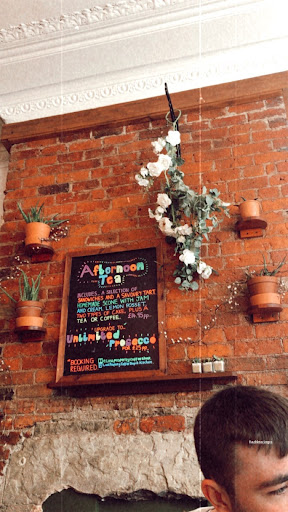 Afternoon
Tea
INCLUDES: A SELECTION OF
SANDWICHES AND A SAVOURY TART
HOMEMADE SCONE WITH JAM
AND CREAM, LEMON POSSET,
TWO TYPES OF CAKE, PLUS A
TEA OR COFFEE. £14.95pp.
UPGRADE TO...
Unlimited
Prosecco
*BOOKING
REQUIRED